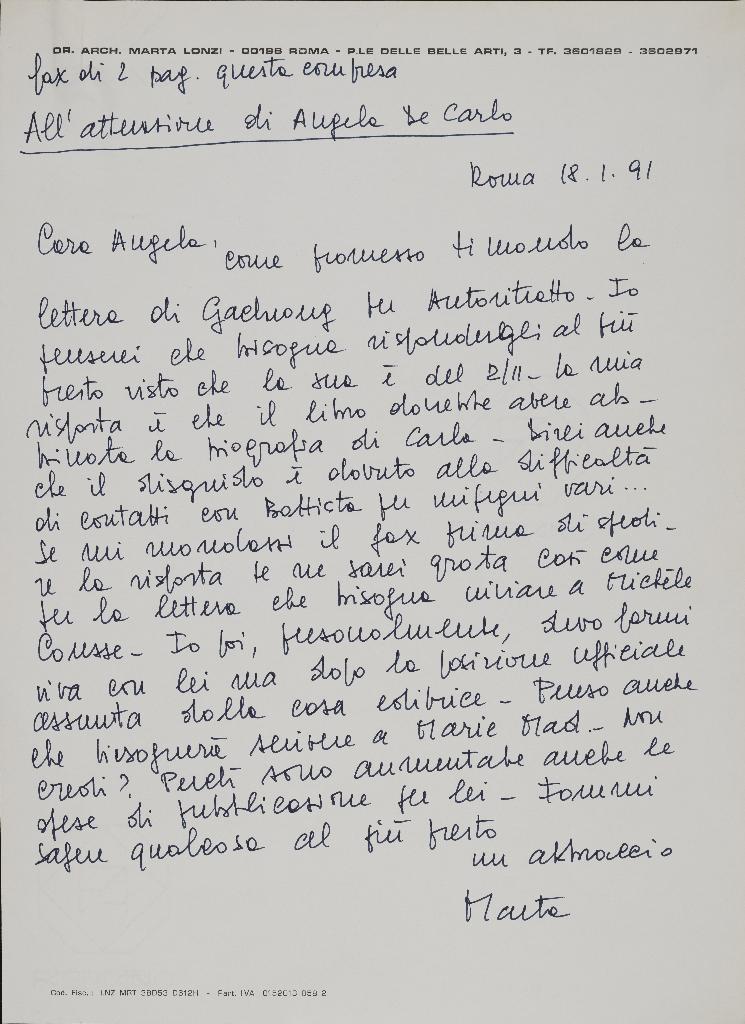 DR. ARCH. MARTA LONZI - 00196 ROMA - P.LE DELLE BELLE ARTI, 3 - TF. 3601829 - 3602971
fax di 2 pag. questa compresa
All'attenzione di Angela De Carlo
Roma 18.1.91
Cara Angela,
come promesso ti mando la
lettera di per Autoritratto - Io
penserei che bisogna rispondergli al più
presto visto che la sua è del 2/11 - la mia
risposta è che il libro dovrebbe avere ab-
binata la biografia di Carla - Direi anche
che il disguido è dovuto alla difficoltà
di contatti con Battista per impegni vari...
Se mi mandassi il fax prima di spedi-
re la risposta te ne sarei grata così come
per la lettera che bisogna inviare a Michèle
Causse - Io poi, personalmente, devo farmi
viva con lei ma dopo la posizione ufficiale
assunta dalla casa editrice - Penso anche
che bisognerà scrivere a Marie Mad - Non
credi? Perché sono aumentate anche le
spese di pubblicazione per lei - Fammi
sapere qualcosa al più presto
un abbraccio
Marta
Cod. Fisc.: LNZ MRT 38D53 D612H - Part. IVA